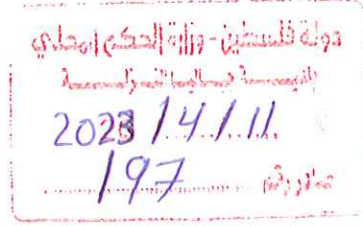 دولة فلسطين - وزارة الحكم المحلي
2023/4/11
197
صادر رقم